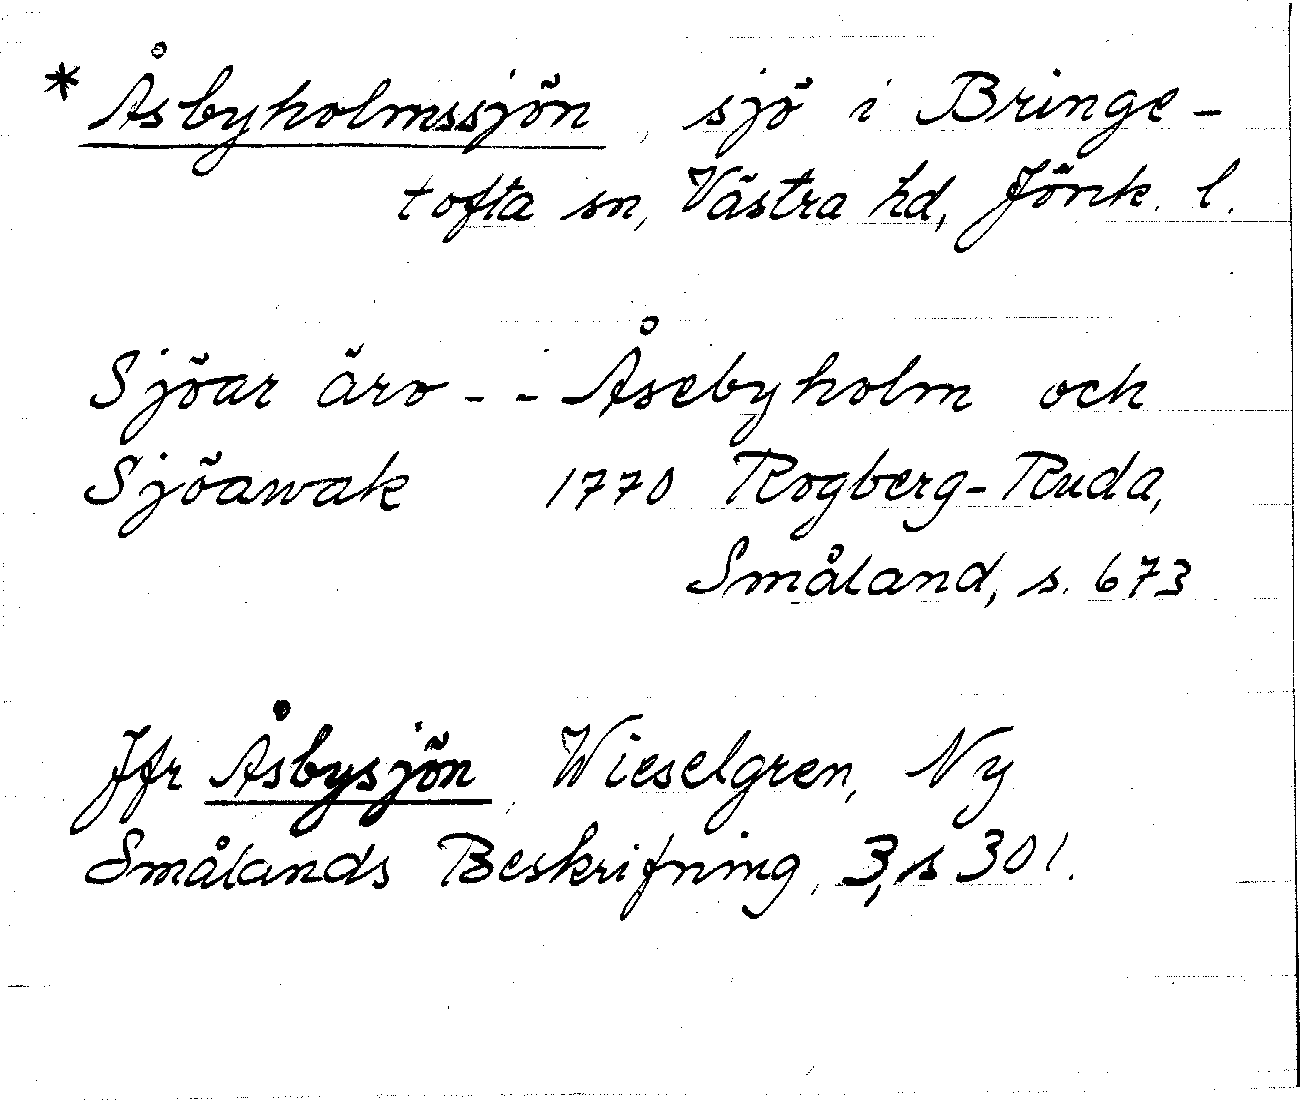 * Åsbyholmssjön, sjö i Bringe-
tofta sn, Västra hd, Jönk. l.
Sjöar äro - - - Åsebyholm och
Sjöawak 1770 Rogberg-Ruda,
Småland, s. 673
Jfr Åsbysjön, Wieselgren, Ny
Smålands Beskrifning, 3, s 301.